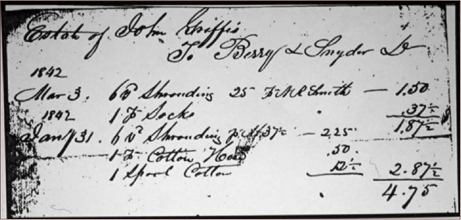 Estate of John Griffis
To Berry & Snyder Dr
1842
Mar 3. 6 Shrouding 25 Smith — 1.50
1 Socks .37½
1842 1.87½
Jany 31. 6 Shrouding 37½ — 2.25
1 Cotton Hose .50
1 Spool Cotton 12½ 2.87½
4.75